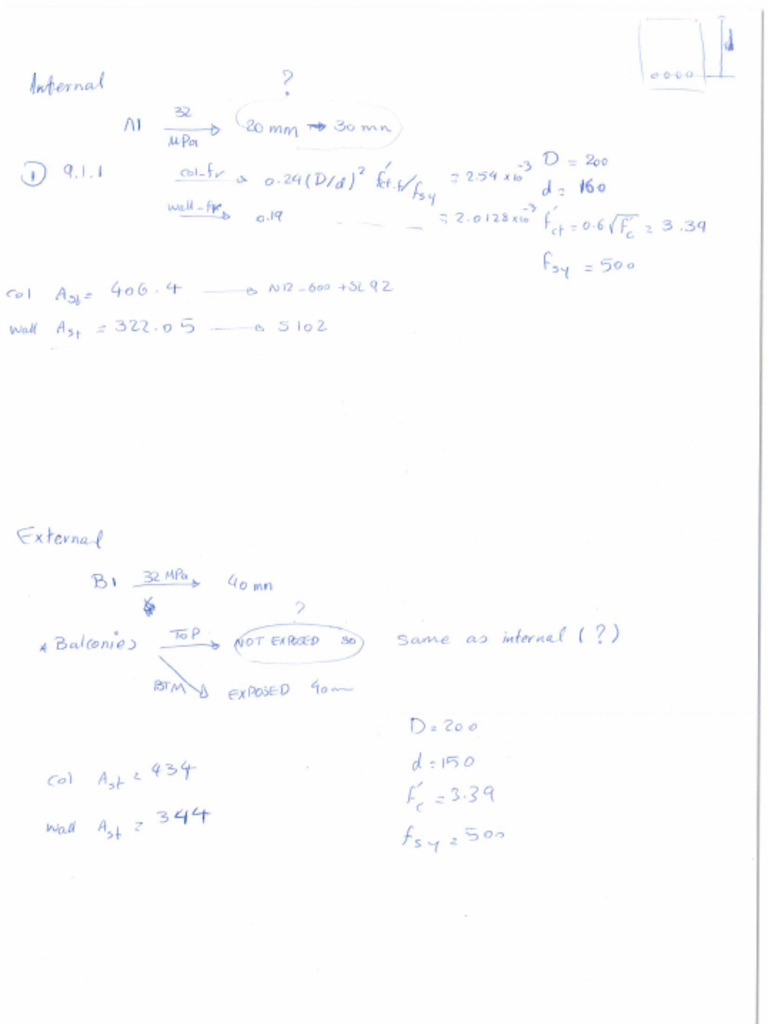 d
Internal
?
A1 32 MPa → 20 mm → 30 mm
① 9.1.1 col-fr → 0.24(D/d)² f'ct.f/fsy = 2.54 x10⁻³ D = 200
d = 160
wall-fr → 0.19 _ _ _ = 2.0128x10⁻³ f'ct = 0.6√f'c = 3.39
fsy = 500
col Ast = 406.4 → N12-600 + SL92
wall Ast = 322.05 → S102
External
B1 32 MPa → 40 mm
?
* Balconies TOP → NOT EXPOSED 30 same as internal (?)
BTM → EXPOSED 40mm
D = 200
col Ast = 434 d = 150
f'c = 3.39
wall Ast = 344
fsy = 500